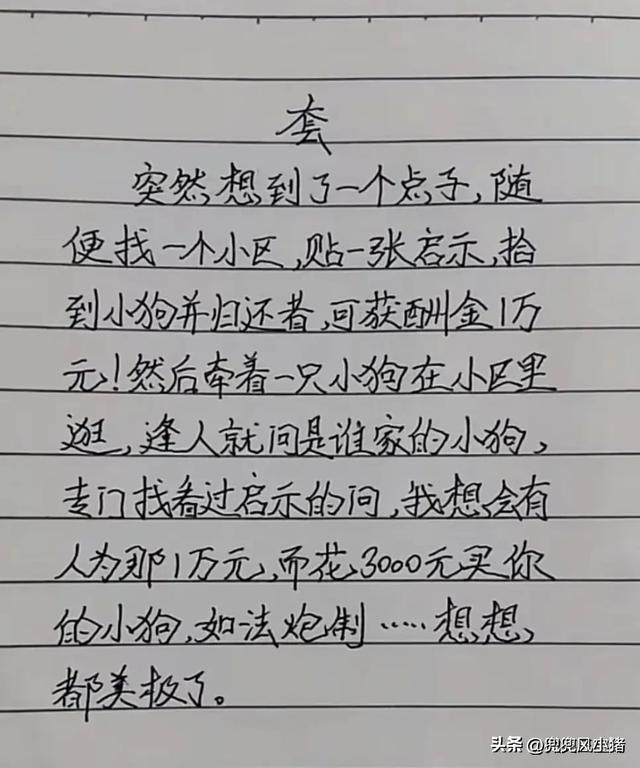 套
突然想到了一个点子,随
便找一个小区,贴一张启示,拾
到小狗并归还者,可获酬金1万
元!然后牵着一只小狗在小区里
逛,逢人就问是谁家的小狗,
专门找看过启示的问,我想会有
人为那1万元,而花3000元买你
的小狗,如法炮制……想想,
都美极了。
头条 @兜兜风生猪